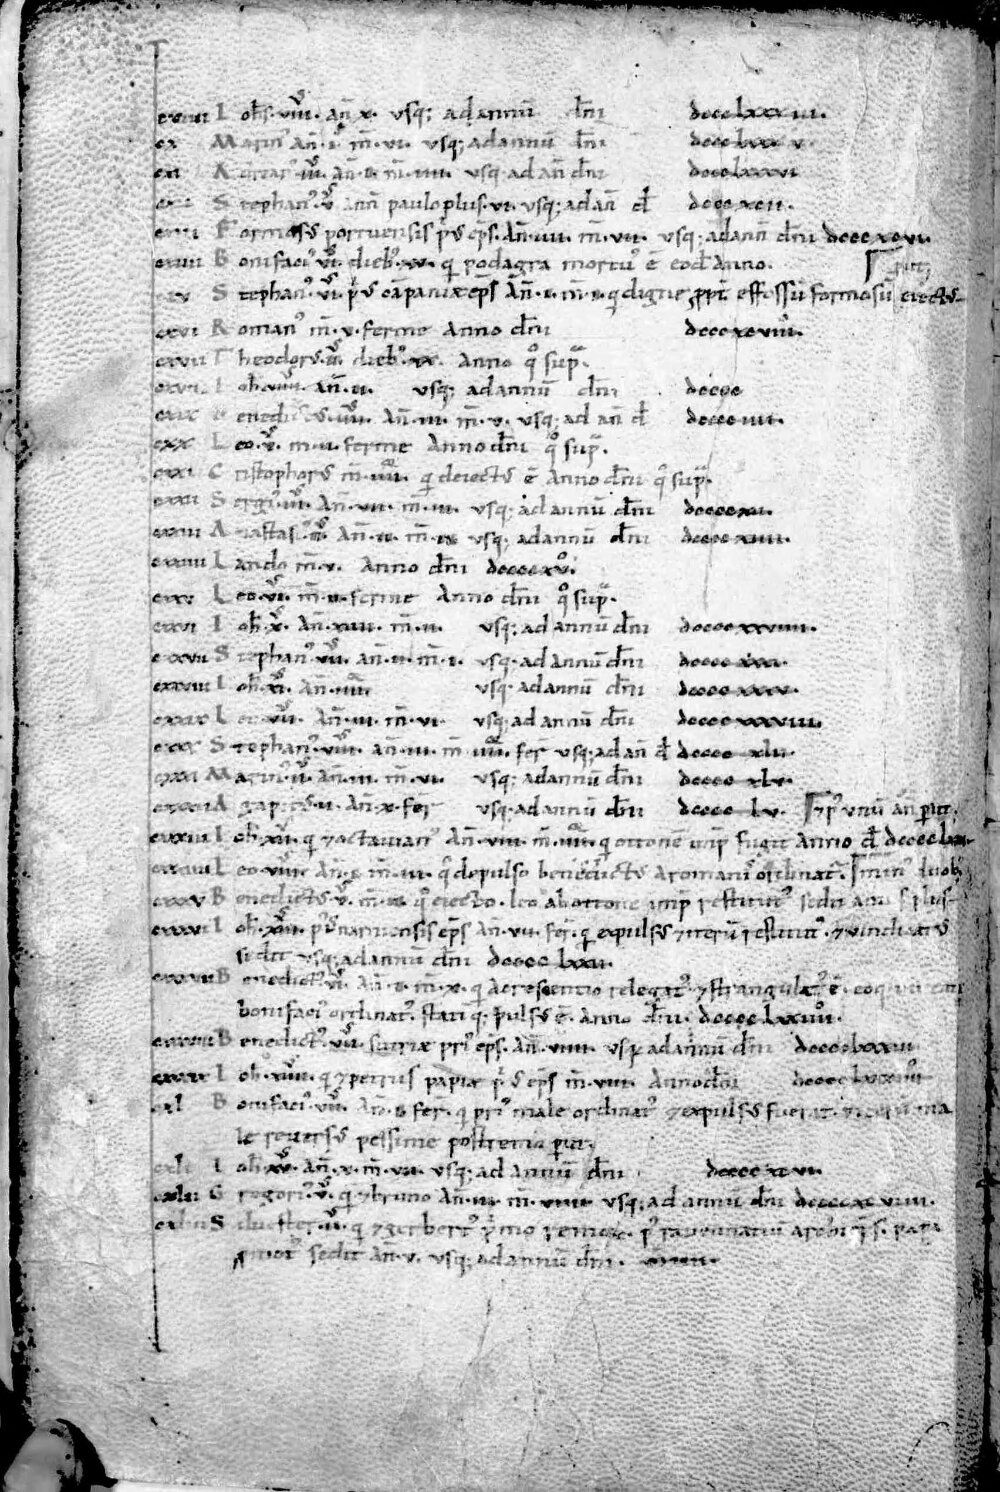 cxviiii Ioh̅s. viii. an̅. x. usq; ad annu̅ dn̅i dccclxxxiii.
cx Marin' An̅. i. m̅. vi. usq; ad annu̅ dn̅i dccclxxxv.
cxi Adrian' iii. An̅. i. m̅. iiii. usq; ad an̅ dn̅i dccclxxxvi
cxii Stephan' v. Ann̅ paulo plus. vi. usq; ad an̅ d̅ dcccxcii.
cxiii Formos' portuensis p'us ep̅s. An̅. iiii. m̅. vii. usq; ad ann̅ dn̅i dcccxcvi.
cxiiii Bonifaci' vi. dieb' xv. qi podagra mortu' e̅ eod̅ Anno. p̲iit;
cxv Stephan' vi. p'us ca̅paniae ep̅s An̅. i. m̅. qi digne ppt̅ effossu̅ formosu̅ eiect'
cxvi Roman' m̅. v. ferme Anno dn̅i dcccxcviii.
cxvii Theodor' ii. dieb' xx. Anno qo sup̅.
cxviii Ioh̅. viiii. an̅. ii. usq; ad annu̅ dn̅i dcccc
cxix Benedict' iiii. An̅. iii. m̅. v. usq; ad an̅ d̅ dcccciiii.
cxx Leo. v. m. ii ferme Anno dn̅i qo sup̅.
cxxi Cristophor' m̅. vii. qi deiect' e̅ Anno dn̅i qo sup̅.
cxxii Sergi' iii. An̅. vii. m̅. iii. usq; ad annu̅ dn̅i dccccxii.
cxxiii Anastasi' iii. An̅. ii. m̅. ii usq; ad annu̅ dn̅i dccccxiiii.
cxxiiii Lando m̅. v. Anno dn̅i dccccxv.
cxxv Leo. vi. m̅. ii. ferme Anno dn̅i qo sup̅.
cxxvi Ioh̅. x. An̅. xiiii. m̅. ii. usq; ad annu̅ dn̅i dccccxxviiii.
cxxvii Stephan' vii. an̅. ii. m̅. i. usq; ad annu̅ dn̅i dccccxxxi.
cxxviii Ioh̅. xi. An̅. iiii usq; ad annu̅ dn̅i dccccxxxv.
cxxix Leo. vii. An̅. iii. m̅. vi. usq; ad annu̅ dn̅i dccccxxxviiii.
cxxx Stephan' viii. an̅. iii. m̅ iiii. fer̅ usq; ad an̅ d̅ dccccxlii.
cxxxi Marin' ii. An̅. iii. m̅. vi. usq; ad annu̅ dn̅i dccccxlv.
cxxxii Agapit' ii. An̅. x. fer̅ usq; ad annu̅ dn̅i dcccclv. & p' unu̅ an̅ p̲iit;
cxxxiii Ioh̅. xii. qi & octavian' An̅. viii. m̅. iiii. qi ottone̅ imp̅ fugit Anno d̅
cxxxiiii Leo. viii. An̅. i. m̅. iii. qo depulso benedict' a romanis ordinat̅. min' duob'
cxxxv Benedict' v. m̅. ii qo eiecto. leo ab ottone imp̅ restitut' sedit
cxxxvi Ioh̅. xiii. p'us narniensis ep̅s An̅. vii. fer̅. qi expuls' & iteru̅ restitut'. & vindicat'
sedit usq; ad annu̅ dn̅i dcccclxxii.
cxxxvii Benedict' vi. An̅. i. m̅. x. qi a crescentio relegat' & strangulat' e̅. eoq; vivente
bonifaci' ordinat'. stati̅ q; puls' e̅. Anno dn̅i. dcccclxxiiii.
cxxxviii Benedict' vii. sutriae pri' ep̅s. An̅. viiii. usq; ad annu̅ dn̅i dcccclxxxiii
cxxxix Ioh̅. xiiii. qi & petrus papiae p'us ep̅s m̅. viii. Anno dn̅i dcccclxxxiiii
cxl Bonifaci' vii. An̅. i fer̅. qi pri' male ordinat' & expuls' fuerat. & iteru̅ ma
le revers' pessime postremo p̲iit;
cxli Ioh̅. xv. An̅. x. m̅. vii. usq; ad annu̅ dn̅i dccccxcvi.
cxlii Gregori' v. qi & bruno An̅. ii. m̅. viiii usq; ad annu̅ dn̅i dccccxcviiii.
cxliii Silvester. ii. qi & gerbert' p'mo remens. p' ravennatiu̅ archiep̅s. papa
p̲mot' sedit An̅. v. usq; ad annu̅ dn̅i.